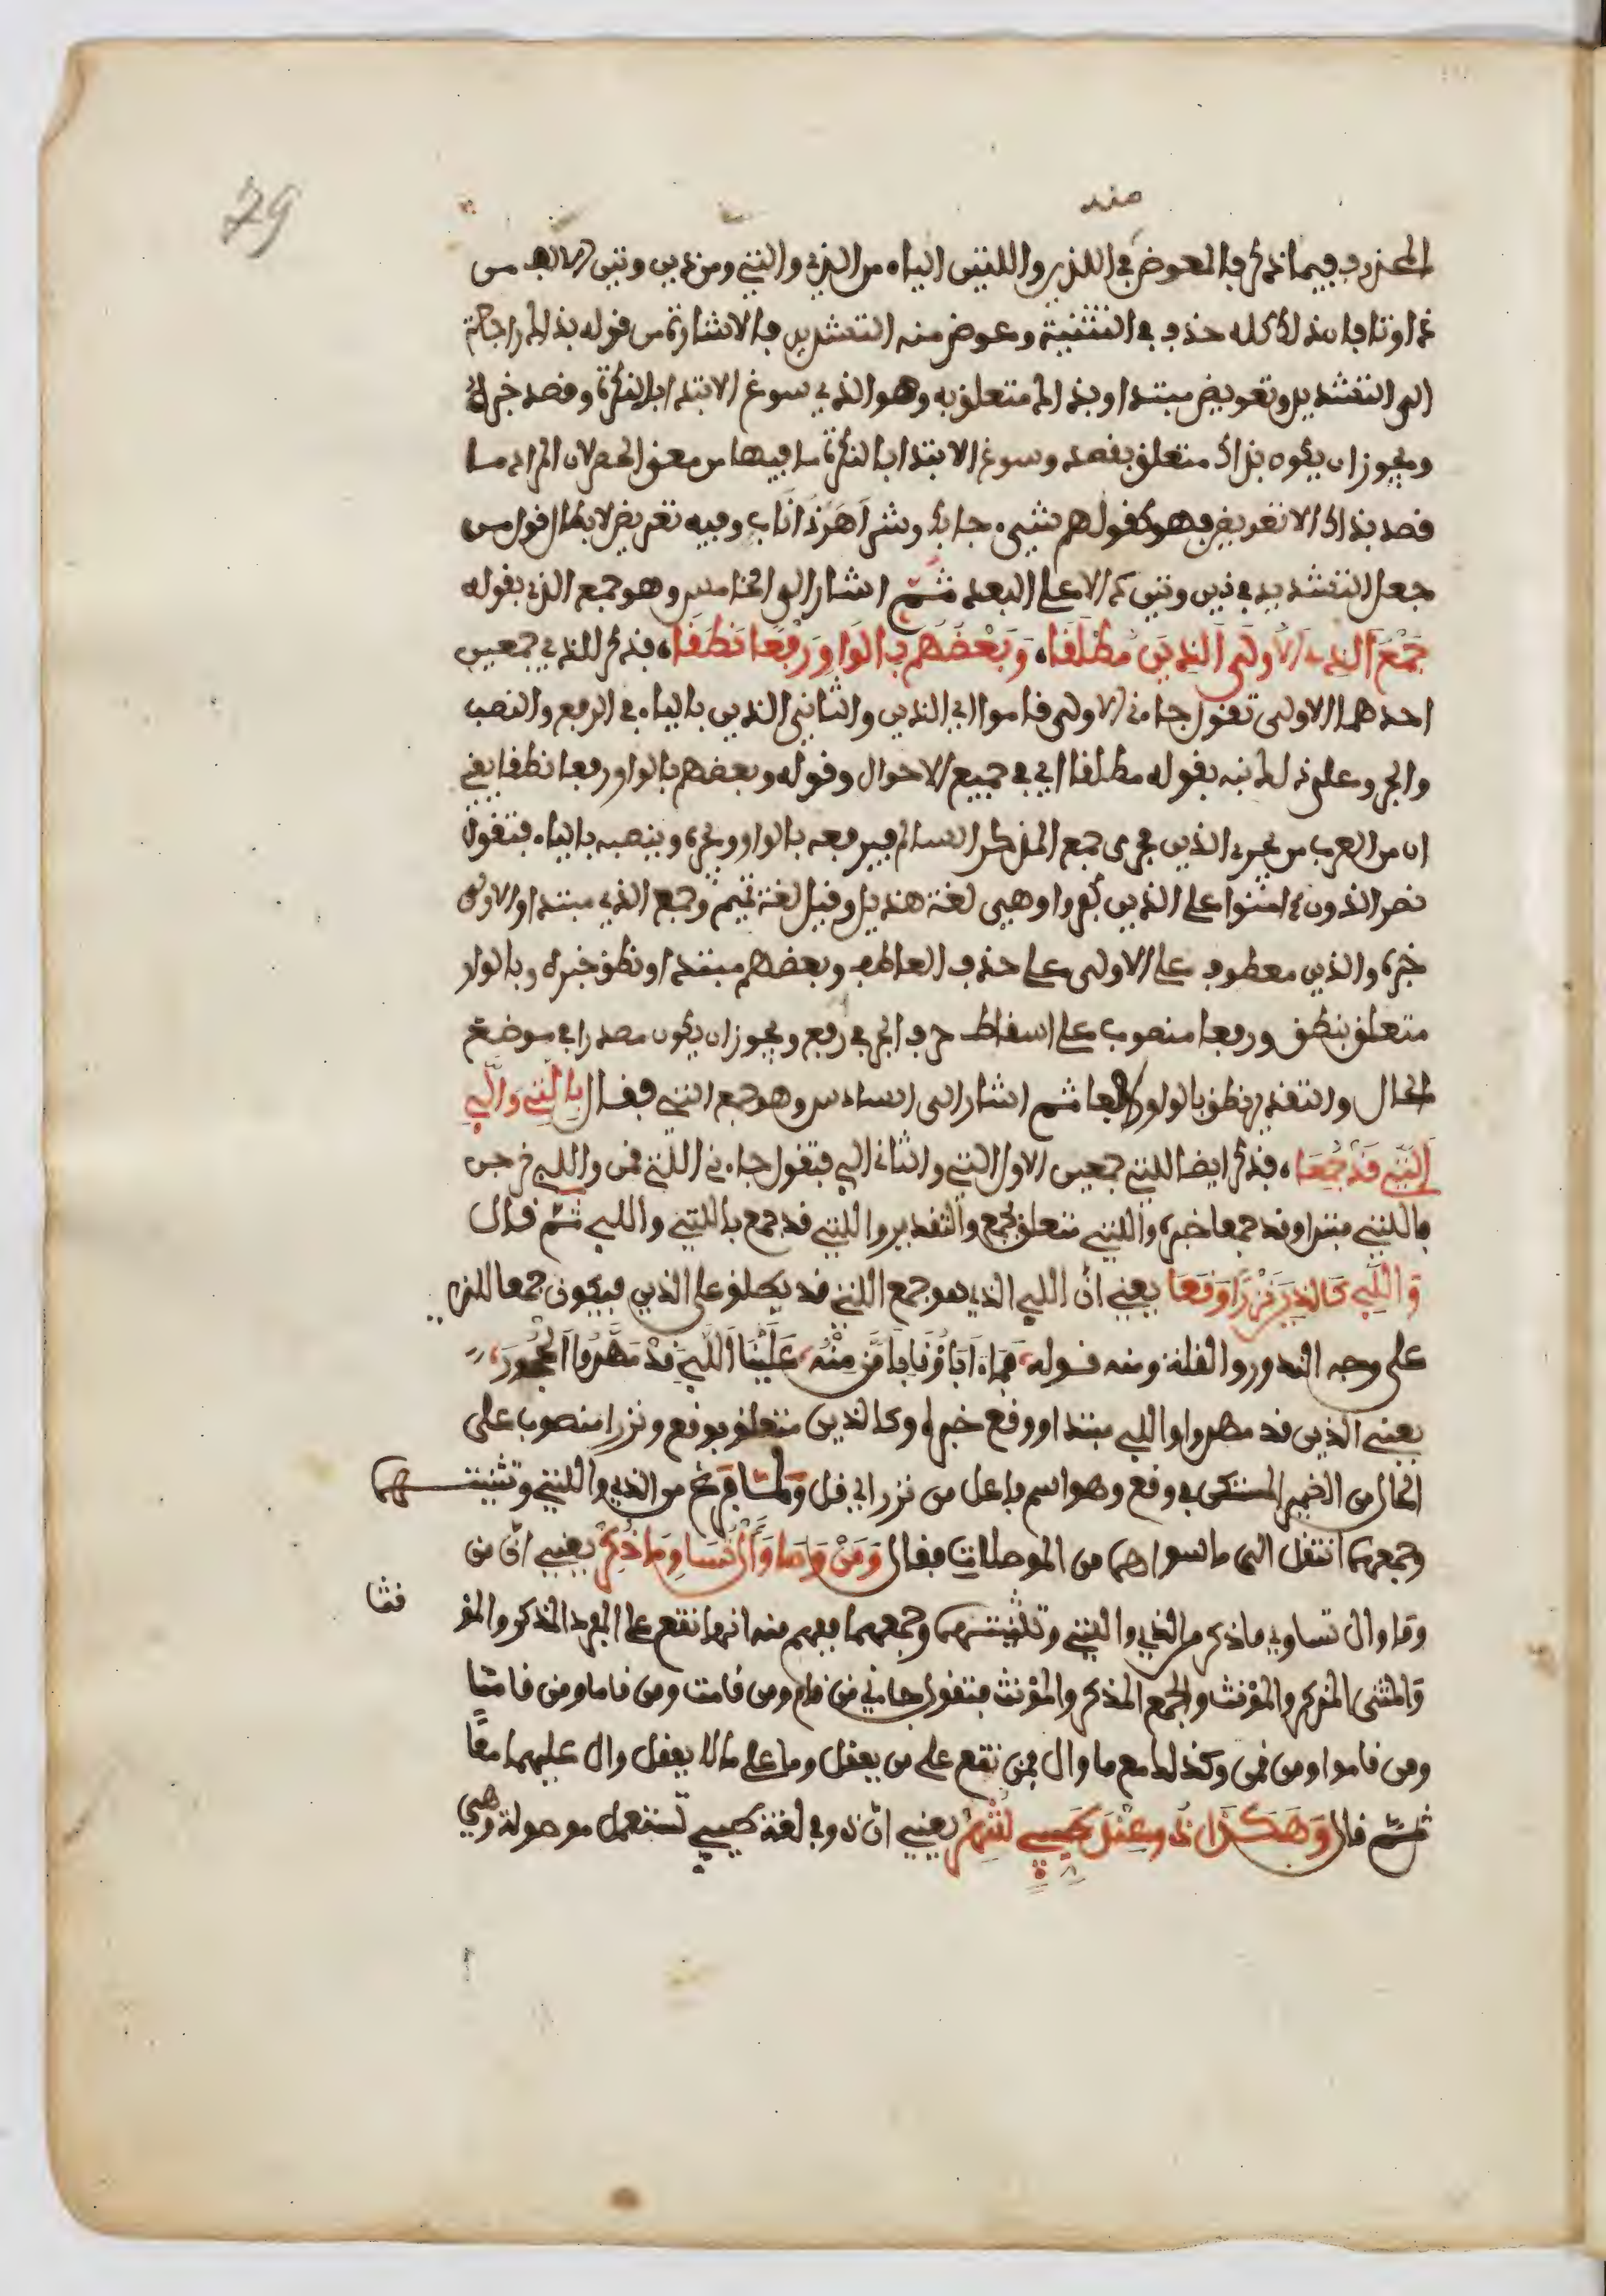 79
منه
المحذوف فيما ذكر فالمعوض في اللذين واللتين الياء من الذي والتي ومن ذين وتين الالف من
ذا وتا فان ذلك كله حذف في التثنية وعوض منه التشديد فالاشارة من قوله بذاك راجعة
الى التشديد وتعويض مبتدا وبذاك متعلق به وهو الذي سوغ الابتدا بالنكرة وقصد خبره
ويجوز ان يكون بذاك متعلق بقصد وسوغ الابتدا بالنكرة ما فيها من معنى الحصر لان المراد ما
قصد بذاك الا تعويض فهو كقولهم شيء جا بك وشر اهر ذا ناب وفيه تعريض لابطال قول من
جعل التشديد في ذين وتين دالا على البعد ثم اشار الى الخامس وهو جمع الذي بقوله
جَمْعُ الذي الاولى الذين مُطْلَقَا، وَبَعْضُهُم بِالوَاوِ رَفْعًا نَطَقَا، فذكر للذي جمعين
احدهما الاولى تقول جاءني الاولى قاموا اي الذين والثاني الذين بالياء في الرفع والنصب
والجر وعلى ذلك نبه بقوله مطلقا اي في جميع الاحوال وقوله وبعضهم بالواو رفعا نطقا يعني
ان من العرب من يجري الذين مجرى جمع المذكر السالم فيرفعه بالواو ويجره وينصبه بالياء فتقول
نصر الذون ءامنوا على الذين كفروا وهي لغة هذيل وقيل لغة تميم وجمع الذي مبتدا والاولى
خبره والذين معطوف على الاولى على حذف العاطف وبعضهم مبتدا ونطق خبره وبالواو
متعلق بنطق ورفعا منصوب على اسقاط حرف الجر في رفع ويجوز ان يكون مصدرا في موضع
الحال والتقدير نطق بالواو رافعا ثم اشار الى السادس وهو جمع التي فقال بِاللاتِ وَاللاءِ
الَّتِي قَدْ جُمِعَا، فذكر ايضا للتي جمعين الاول اللتي والثاني الي فتقول جاءني اللتي قمن واللي خرجن
فاللتي مبتدا وقد جمعا خبره وباللتي متعلق بجمع والتقدير واللتي قد جمع باللتي واللي ثم قال
وَاللَّاءِ كَالذِينَ نَزْرًا وَقَعَا يعني ان اللي الذي هو جمع اللتي قد يطلق على الذين فيكون جمعا للذي
على وجه الندور والقلة ومنه قوله، فَمَا ءَابَاؤُنَا بِأَمَنَّ مِنْهُ، عَلَيْنَا اللَّاءِ قَدْ مَهَدُوا الحُجُورَ،
يعني الذين قد مهدوا واللي مبتدا ووقع خبره وكالذين متعلق بوقع ونزرا منصوب على
الحال من الضمير المستكن في وقع وهو اسم فاعل من نزر اي قل وَلَمَّا فرغ من الذي واللتي وتثنيتهما
وجمعهما انتقل الى ما سواهما من الموصلات فقال وَمَنْ وَمَا وَأَلْ تُسَاوِي مَا ذُكِرْ يعني ان من
وما وال تساوي ما ذكر من الذي والتي وتثنيتهما وجمعهما ففهم منه انها تقع على المفرد المذكر والمؤ
نثا
والمثنى المذكر والمؤنث والجمع المذكر والمؤنث فتقول جاءني من قام ومن قامت ومن قاما ومن قامتا
ومن قاموا ومن قمن وكذلك مع ما وال فمن تقع على من يعقل وما على ما لا يعقل وال عليهما معًا
ثم قال وَهَكَذَا ذُو عِنْدَ طَيِّئٍ شُهِرْ يعني ان ذو في لغة طيئ تستعمل موصولة وهي